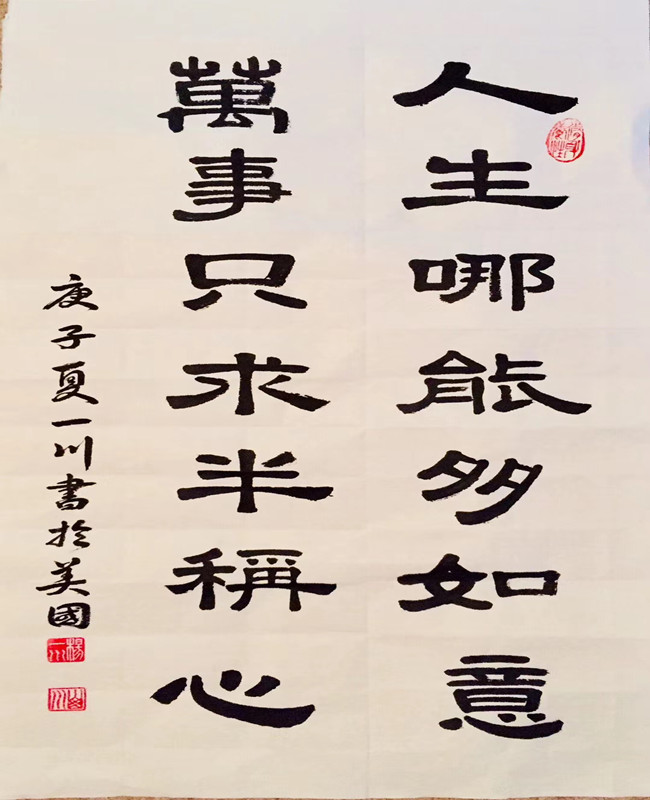 人生哪能多如意
萬事只求半稱心
庚子夏一川書於美國